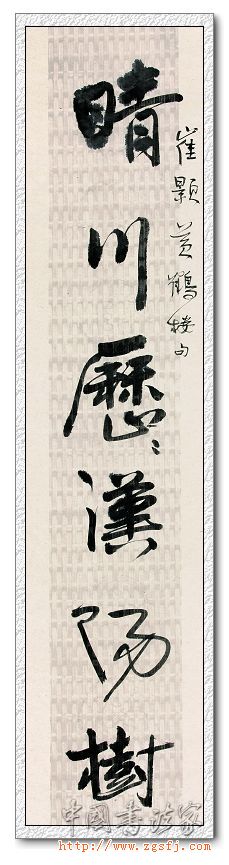 崔顥黃鶴樓句
晴川歷〻漢陽樹
中國書法家
http://www.zgsfj.com